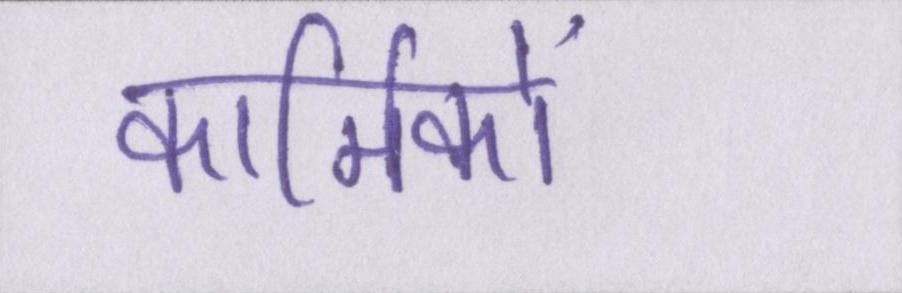 कार्मिकों